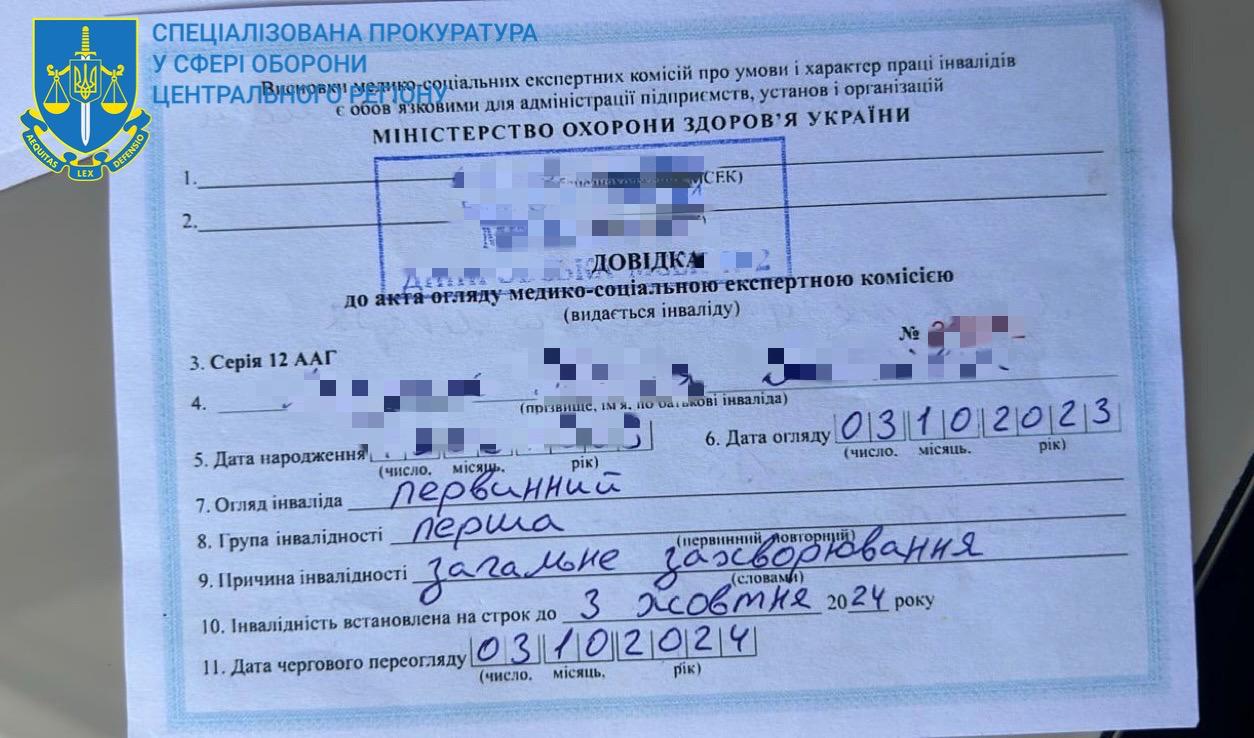 СПЕЦІАЛІЗОВАНА ПРОКУРАТУРА
У СФЕРІ ОБОРОНИ
ЦЕНТРАЛЬНОГО РЕГІОНУ
AEQUITAS LEX DEFENSIO
Висновки медико-соціальних експертних комісій про умови і характер праці інвалідів
є обов'язковими для адміністрації підприємств, установ і організацій
МІНІСТЕРСТВО ОХОРОНИ ЗДОРОВ'Я УКРАЇНИ
1.
МСЕК)
2.
ДОВІДКА
до акта огляду медико-соціальною експертною комісією
(видається інваліду)
№
3. Серія 12 ААГ
4.
(прізвище, ім'я, по батькові інваліда)
5. Дата народження 6. Дата огляду 03102023
(число. місяць. рік) (число. місяць. рік)
7. Огляд інваліда первинний
(первинний повторний)
8. Група інвалідності перша
(словами)
9. Причина інвалідності загальне захворювання
10. Інвалідність встановлена на строк до 3 жовтня 2024 року
11. Дата чергового переогляду 03102024
(число. місяць, рік)